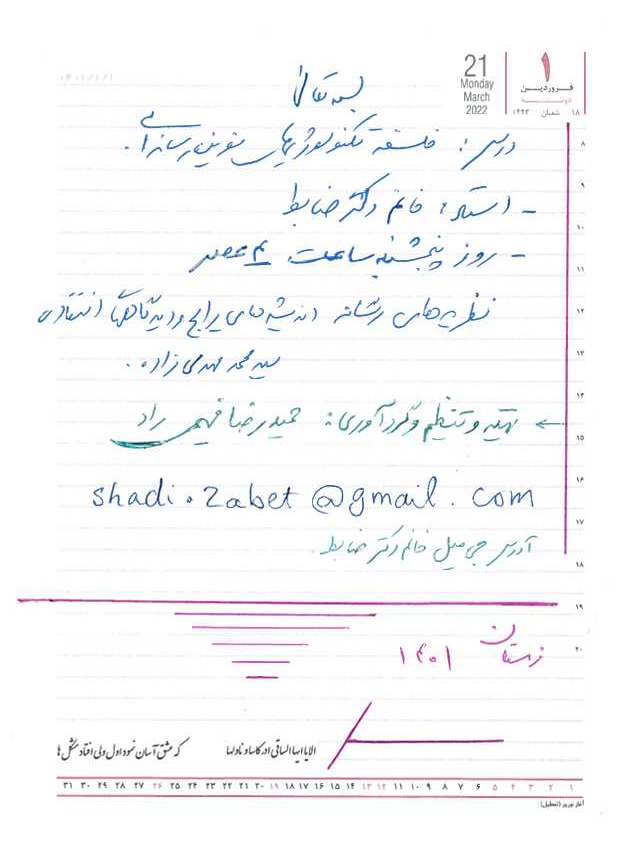 ۱۴۰۱/۱/۱
21
Monday
March
2022
۱
فروردین
دوشنبه
۱۸ شعبان ۱۴۴۳
بسمه تعالی
درس: فلسفه تکنولوژیهای نوین رسانه‌ای.
- استاد: خانم دکتر ضابط
- روز پنجشنبه ساعت ۴ عصر
نظریه‌های رسانه اندیشه‌های رایج و دیدگاههای انتقادی
سید محمد مهدی زاده.
← تهیه و تنظیم و گردآوری: حمیدرضا فهیمی راد
shadi.zabet@gmail.com
آدرس جی میل خانم دکتر ضابط
زمستان ۱۴۰۱
۸
۹
۱۰
۱۱
۱۲
۱۳
۱۴
۱۵
۱۶
۱۷
۱۸
۱۹
۲۰
الا یا ایها الساقی ادر کاسا و ناولها که عشق آسان نمود اول ولی افتاد مشکل‌ها
۱ ۲ ۳ ۴ ۵ ۶ ۷ ۸ ۹ ۱۰ ۱۱ ۱۲ ۱۳ ۱۴ ۱۵ ۱۶ ۱۷ ۱۸ ۱۹ ۲۰ ۲۱ ۲۲ ۲۳ ۲۴ ۲۵ ۲۶ ۲۷ ۲۸ ۲۹ ۳۰ ۳۱
آغاز نوروز (تعطیل)